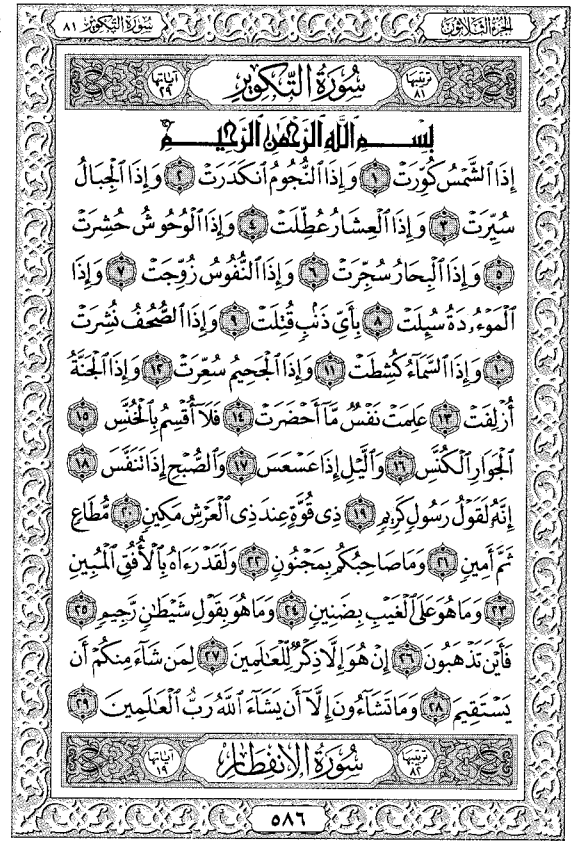 الجزء الثلاثون سورة التكوير ٨١
ترتيبها ٨١ سورة التكوير آياتها ٢٩
بِسْمِ ٱللَّهِ ٱلرَّحْمَٰنِ ٱلرَّحِيمِ
إِذَا ٱلشَّمْسُ كُوِّرَتْ ١ وَإِذَا ٱلنُّجُومُ ٱنكَدَرَتْ ٢ وَإِذَا ٱلْجِبَالُ
سُيِّرَتْ ٣ وَإِذَا ٱلْعِشَارُ عُطِّلَتْ ٤ وَإِذَا ٱلْوُحُوشُ حُشِرَتْ
٥ وَإِذَا ٱلْبِحَارُ سُجِّرَتْ ٦ وَإِذَا ٱلنُّفُوسُ زُوِّجَتْ ٧ وَإِذَا
ٱلْمَوْءُۥدَةُ سُئِلَتْ ٨ بِأَىِّ ذَنۢبٍ قُتِلَتْ ٩ وَإِذَا ٱلصُّحُفُ نُشِرَتْ
١٠ وَإِذَا ٱلسَّمَآءُ كُشِطَتْ ١١ وَإِذَا ٱلْجَحِيمُ سُعِّرَتْ ١٢ وَإِذَا ٱلْجَنَّةُ
أُزْلِفَتْ ١٣ عَلِمَتْ نَفْسٌ مَّآ أَحْضَرَتْ ١٤ فَلَآ أُقْسِمُ بِٱلْخُنَّسِ ١٥
ٱلْجَوَارِ ٱلْكُنَّسِ ١٦ وَٱلَّيْلِ إِذَا عَسْعَسَ ١٧ وَٱلصُّبْحِ إِذَا تَنَفَّسَ ١٨
إِنَّهُۥ لَقَوْلُ رَسُولٍ كَرِيمٍ ١٩ ذِى قُوَّةٍ عِندَ ذِى ٱلْعَرْشِ مَكِينٍ ٢٠ مُّطَاعٍ
ثَمَّ أَمِينٍ ٢١ وَمَا صَاحِبُكُم بِمَجْنُونٍ ٢٢ وَلَقَدْ رَءَاهُ بِٱلْأُفُقِ ٱلْمُبِينِ
٢٣ وَمَا هُوَ عَلَى ٱلْغَيْبِ بِضَنِينٍ ٢٤ وَمَا هُوَ بِقَوْلِ شَيْطَٰنٍ رَّجِيمٍ ٢٥
فَأَيْنَ تَذْهَبُونَ ٢٦ إِنْ هُوَ إِلَّا ذِكْرٌ لِّلْعَٰلَمِينَ ٢٧ لِمَن شَآءَ مِنكُمْ أَن
يَسْتَقِيمَ ٢٨ وَمَا تَشَآءُونَ إِلَّآ أَن يَشَآءَ ٱللَّهُ رَبُّ ٱلْعَٰلَمِينَ ٢٩
ترتيبها ٨٢ سورة الانفطار آياتها ١٩
٥٨٦